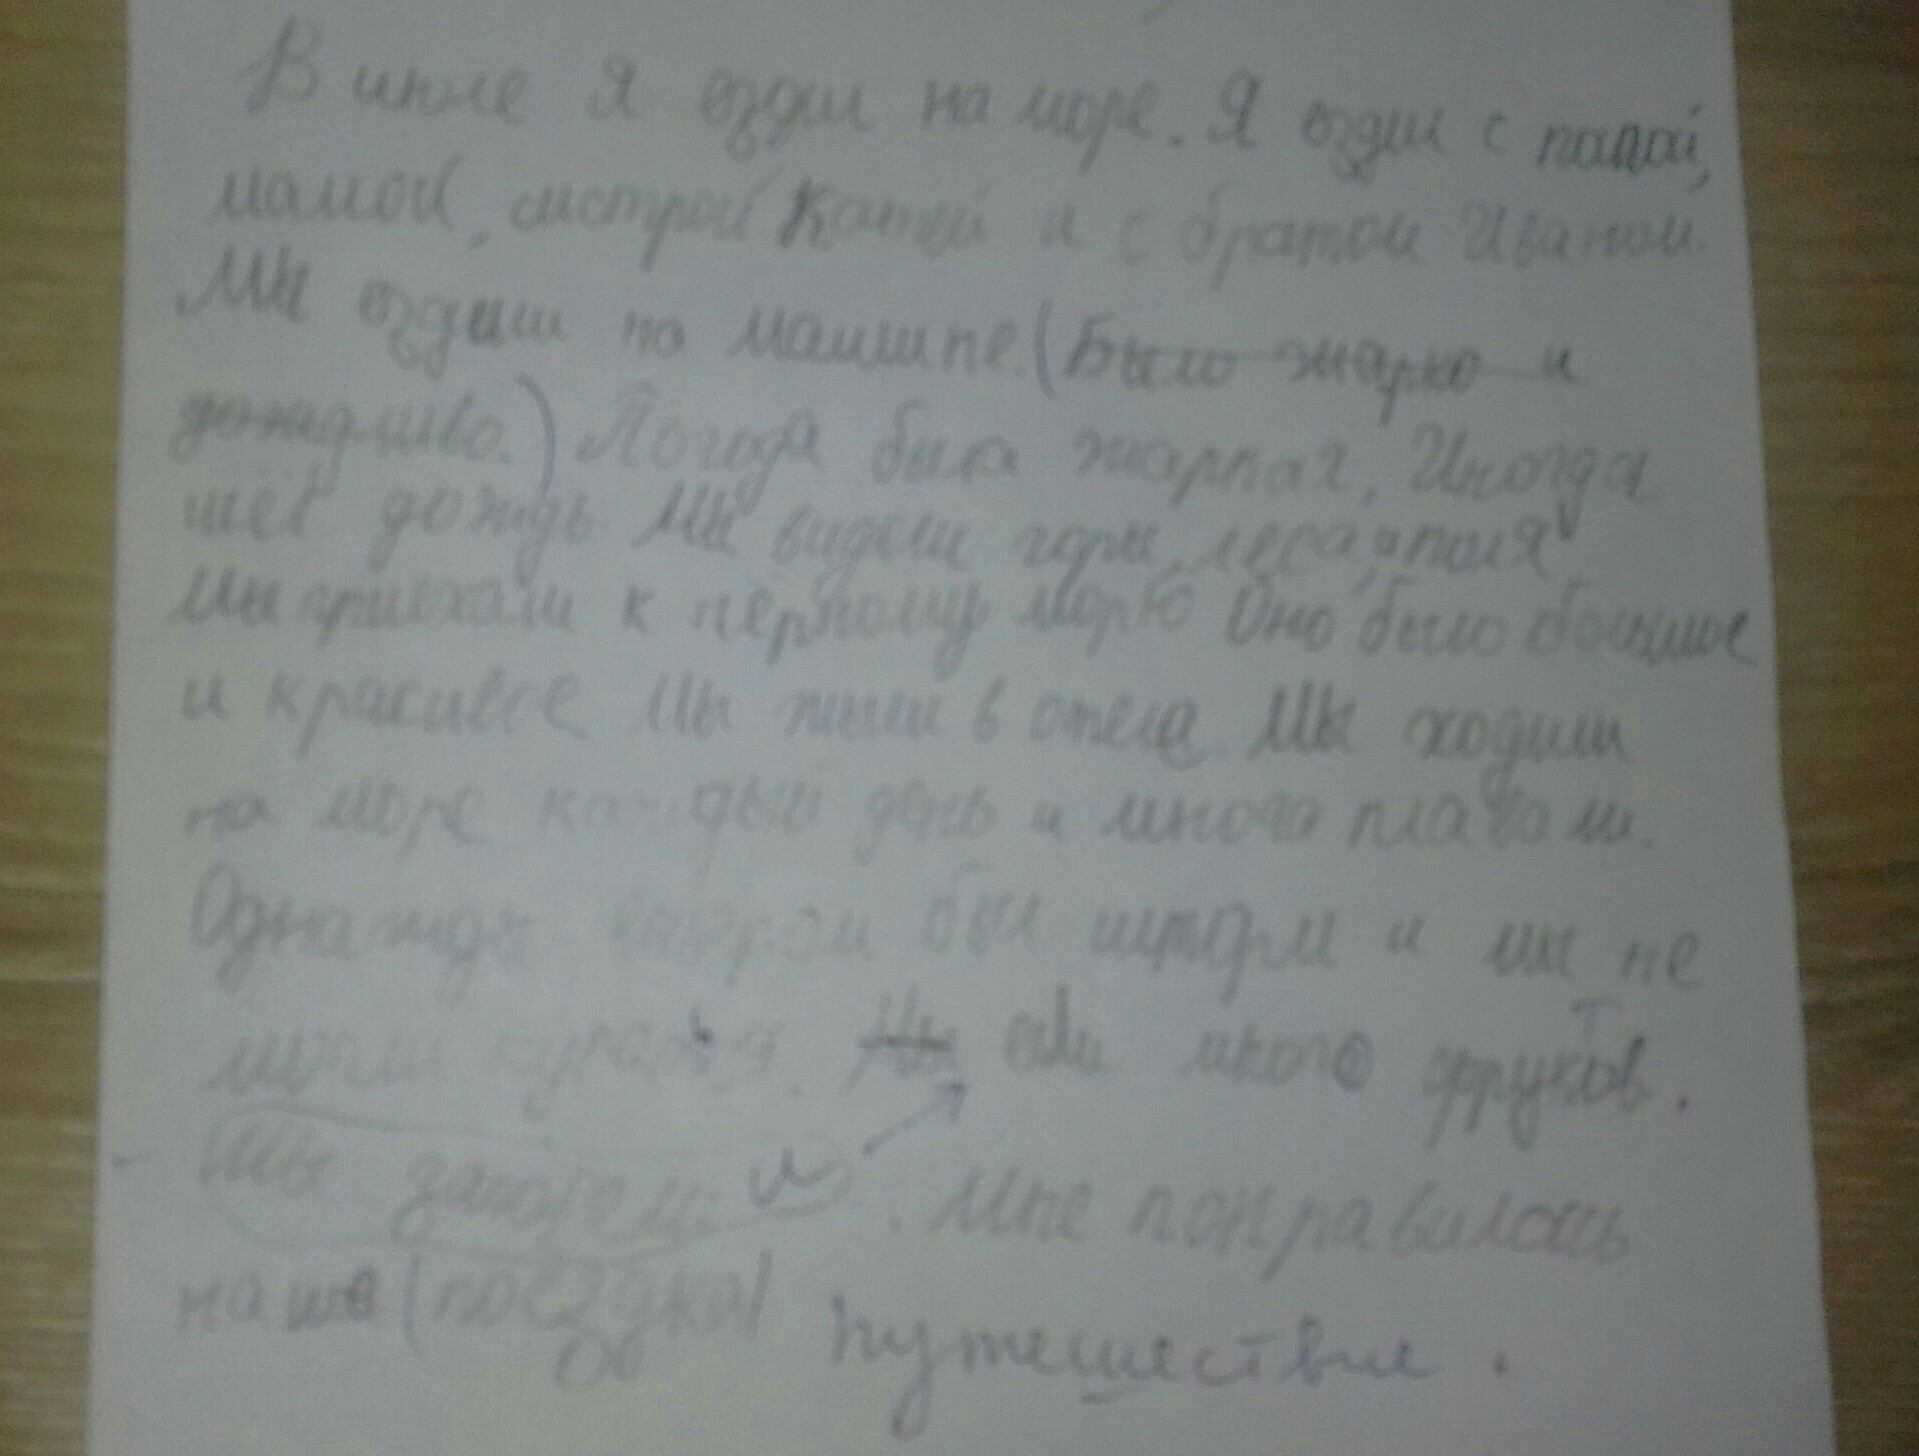 В июле я ездил на море. Я ездил с папой,
мамой, систрой Катей и с братом Иваном.
Мы ездили на машине. (Было жарко и
дождливо.) Погода была жаркая, Иногда
шёл дождь. Мы видели горы, леса, поля
Мы приехали к чёрному морю Оно было большое
и красивое Мы жили в отеле. Мы ходили
на море каждый день и много плавали.
Однажды был шторм и мы не
могли купаться. Мы ели много фруков.
Мы и . Мне понравилось
наше (поездка) путешествие.